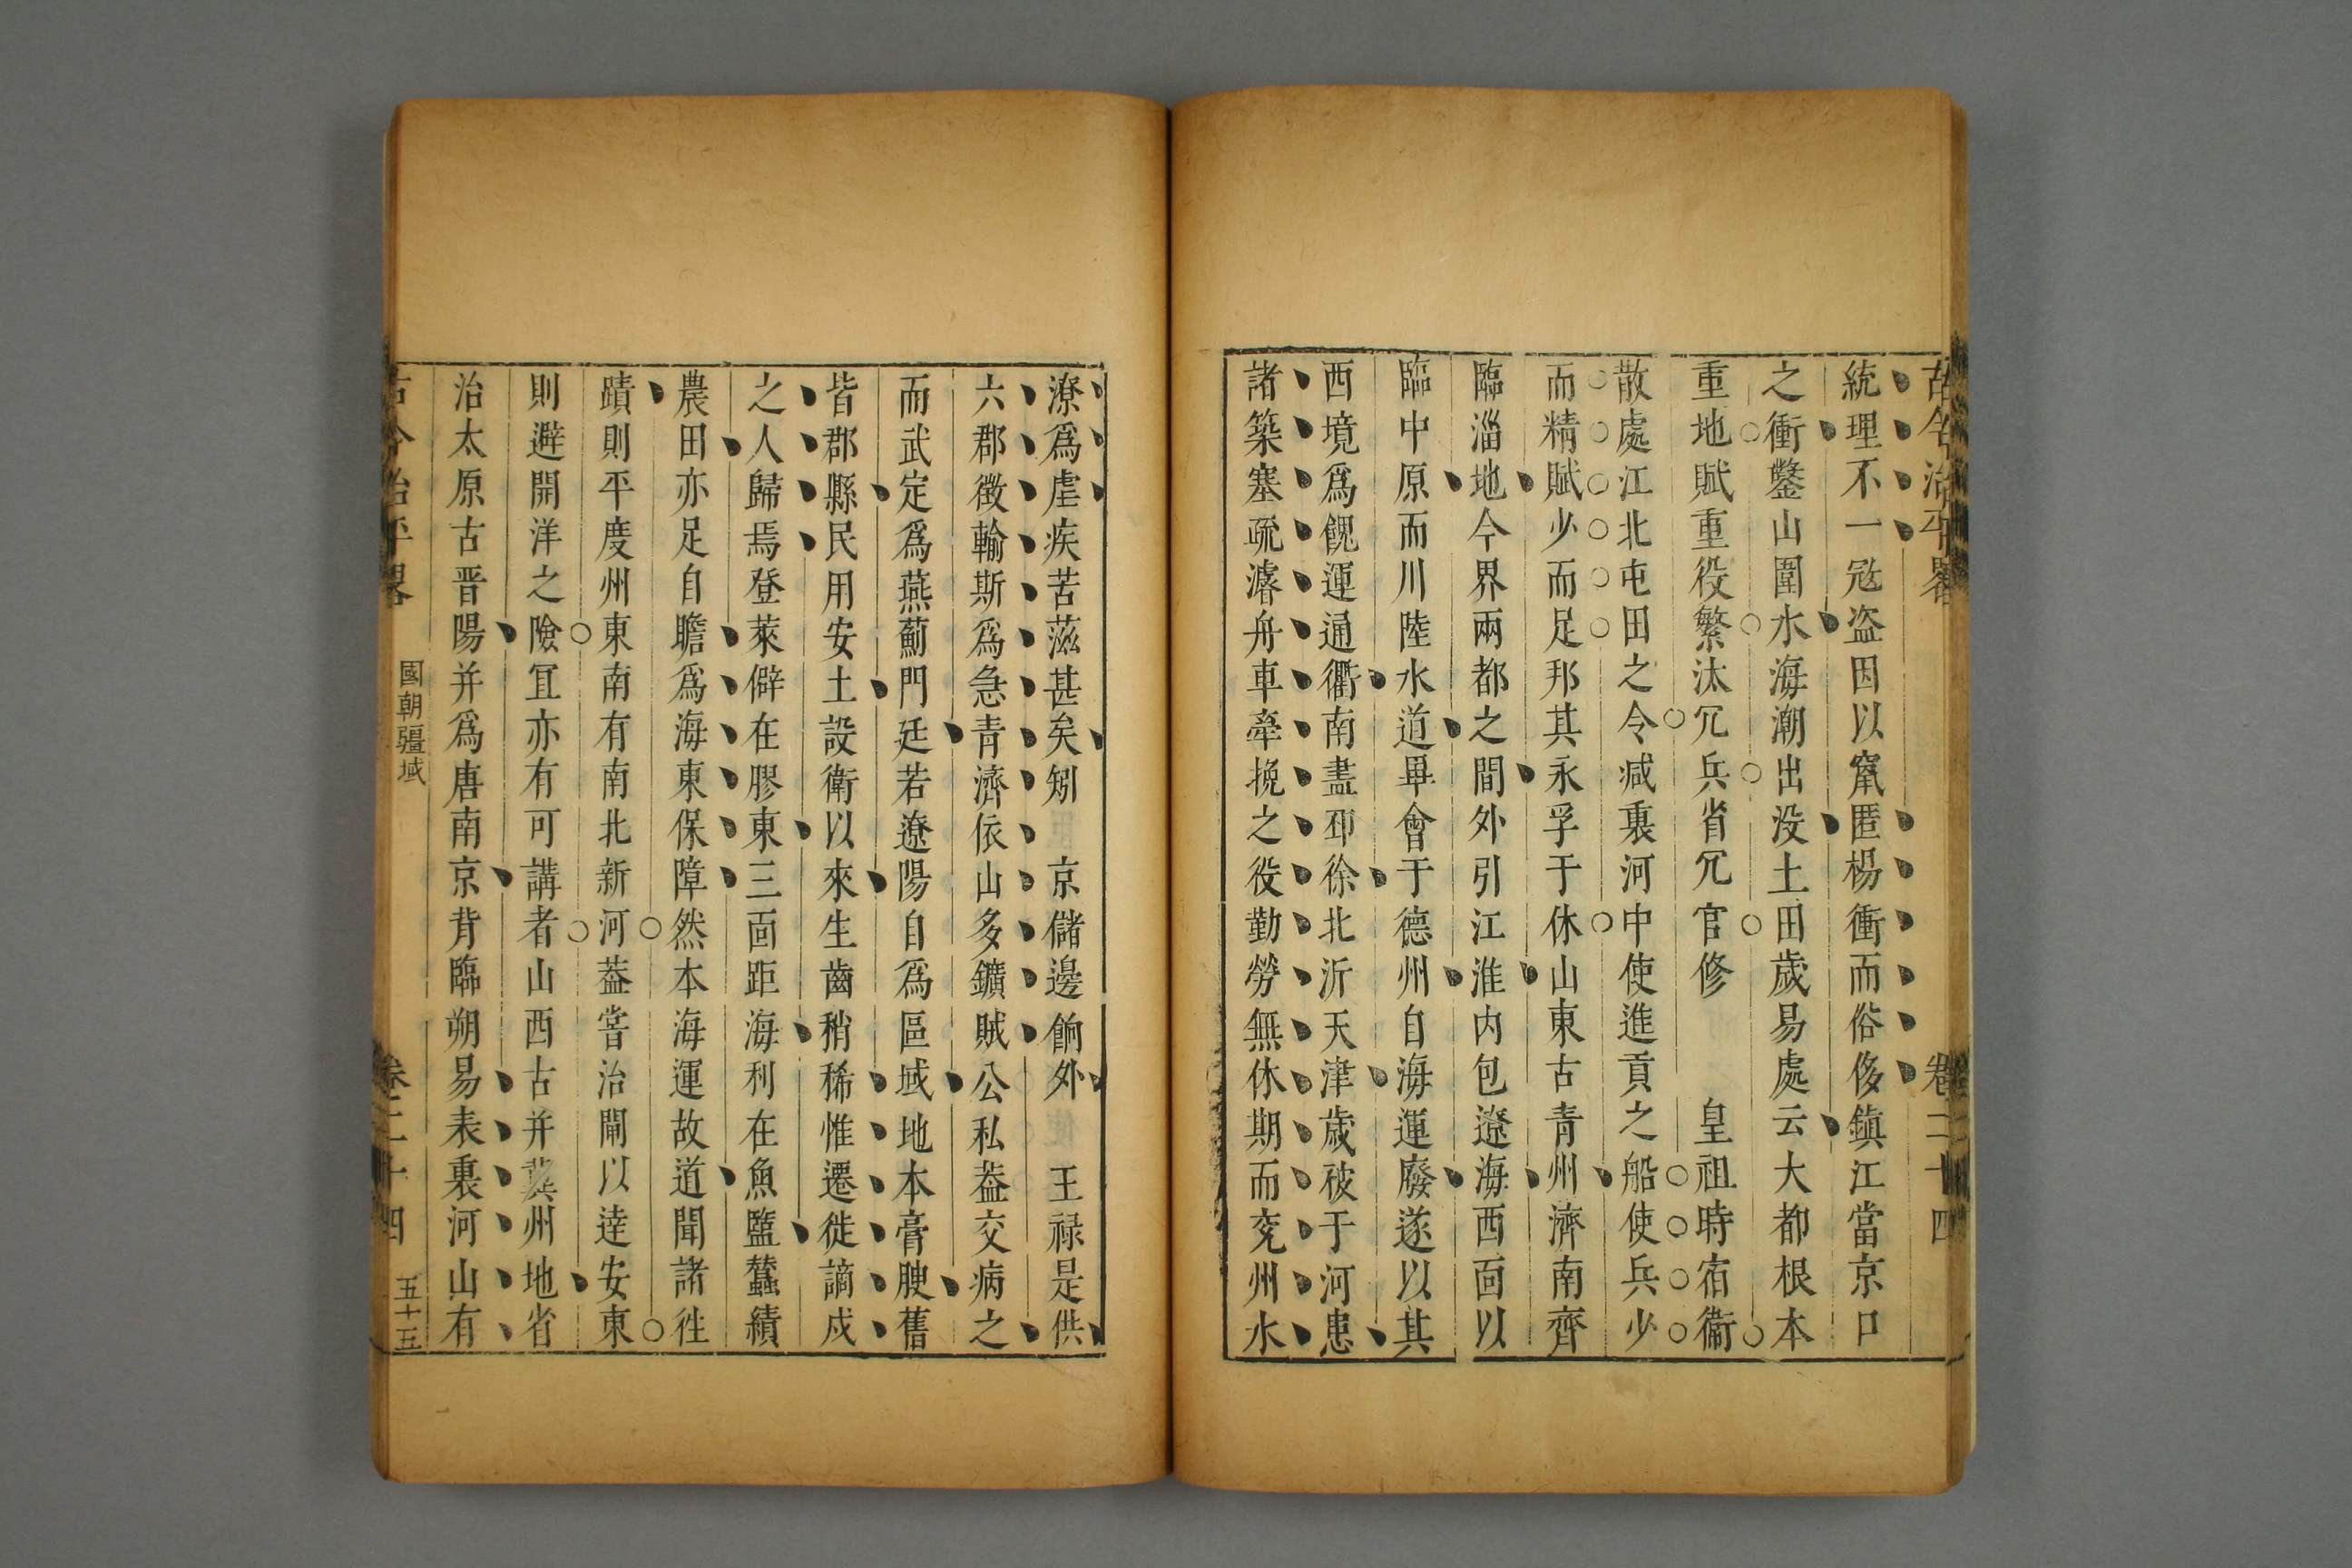 古今治平畧 卷二十四
統理不一冦盗因以窩匿楊衝而俗侈鎮江當京口
之衝鑿山圍水海潮出没土田歲易處云大都根本
重地賦重役繁汰冗兵省冗官修 皇祖時宿衞
散處江北屯田之令减裏河中使進貢之船使兵少
而精賦少而足邦其永孚于休山東古青州濟南齊
臨淄地今界兩都之間外引江淮内包遼海西面以
臨中原而川陸水道畢會于德州自海運廢遂以其
西境爲餽運通衢南盡邳徐北沂天津歲被于河患
諸築塞疏濬舟車牽挽之役勤勞無休期而兖州水
潦爲虐疾苦滋甚矣矧 京儲邊餉外 王禄是供
六郡徴輸斯爲急青濟依山多鑛賊公私葢交病之
而武定爲燕薊門廷若遼陽自爲區域地本膏腴舊
皆郡縣民用安土設衛以來生齒稍稀惟遷徙謫戍
之人歸焉登萊僻在膠東三面距海利在魚鹽蠶績
農田亦足自贍爲海東保障然本海運故道聞諸徃
蹟則平度州東南有南北新河葢甞治閘以逹安東
則避開洋之險冝亦有可講者山西古并兾州地省
治太原古晋陽并爲唐南京背臨朔易表裏河山有
古今治平畧 國朝疆域 卷二十四 五十五